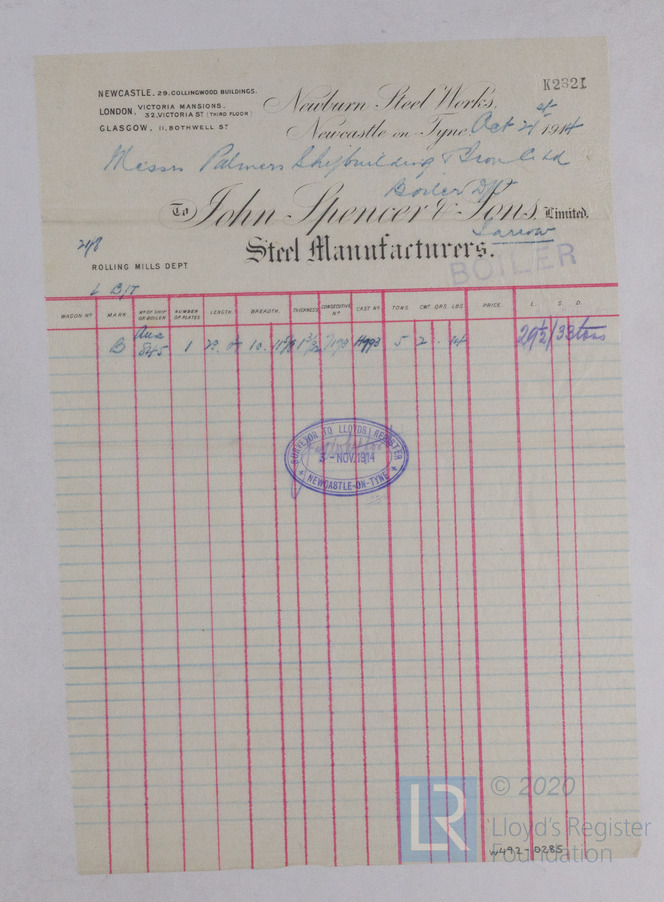 K2321
NEWCASTLE, 29, COLLINGWOOD BUILDINGS.
LONDON, VICTORIA MANSIONS,
32, VICTORIA ST (THIRD FLOOR)
GLASGOW, 11, BOTHWELL ST
Newburn Steel Works,
Newcastle on Tyne Oct 21st 1914
Messrs Palmers Shipbuilding & Iron Co Ld
Boiler Dpt
To John Spencer & Sons, Limited.
Jarrow
Steel Manufacturers.
BOILER
ROLLING MILLS DEPT
WAGON No MARK No OF SHIP OR BOILER NUMBER OF PLATES LENGTH. BREADTH. THICKNESS CONSECUTIVE No CAST No TONS. CWT. QRS. LBS. PRICE. L. S. D.
B 845 1 10. 5 2 . 14 29½/33 tons
SURVEYOR TO LLOYDS REGISTER
3 - NOV. 1914
NEWCASTLE-ON-TYNE
LR © 2020
Lloyd's Register
Foundation
W492-0285